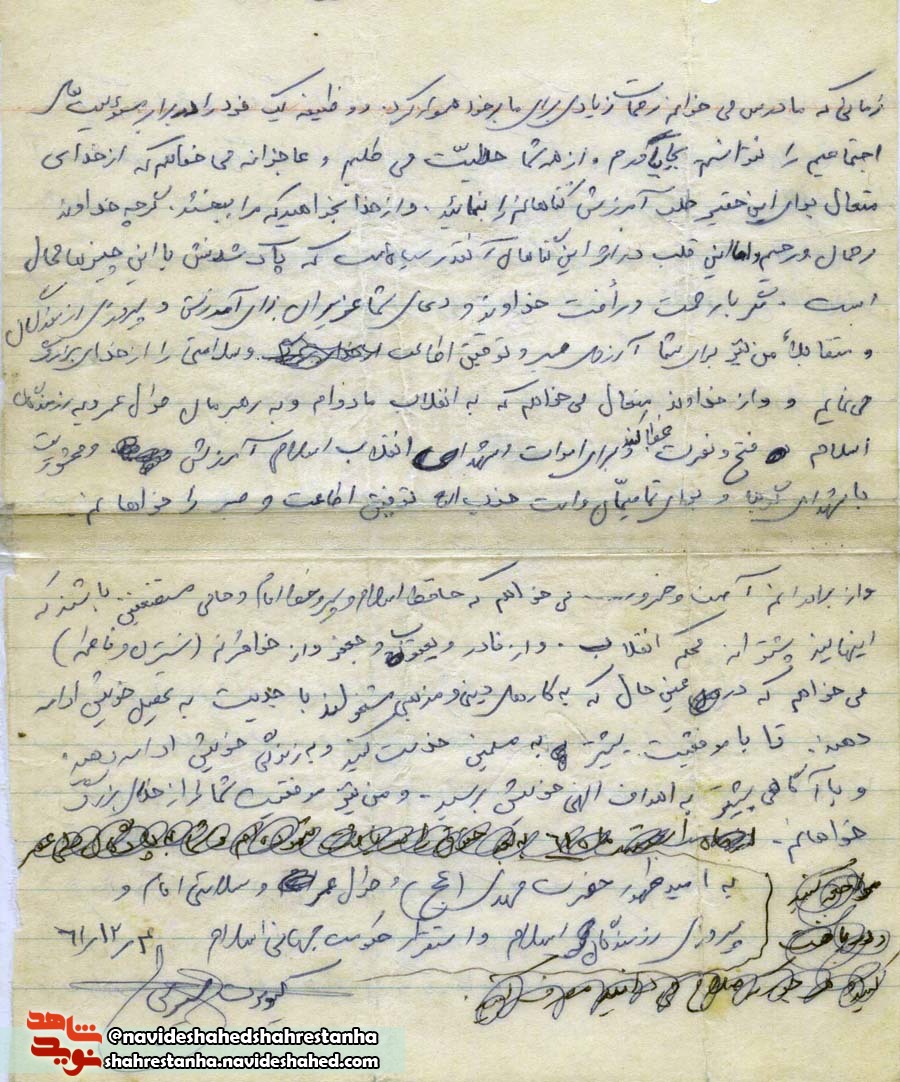 زمانی که ما درس می خوانیم زحمات زیادی برای ما برخود هموار کرد. و وظیفه یک خود را در برابر مسؤلیت های
اجتماعیم را نتوانستم بجای آورم و از همه شما حلالیّت می طلبم و عاجزانه می خواهم که از خدای
متعال برای این حقیر طلب آمرزش گناهانم را بنمائید. و از خدا بخواهید که مرا ببخشد. گرچه خداوند
رحمان و رحیم و اما این قلب در اثر این گناهان آنقدر سیاه است که پاک شدنش با این چیزها محال
است. مگر با رحمت و رأفت خداوند و دعای شما عزیزان برای آمرزش و پیروزی رزمندگان
و متقابلاً من نیز برای شما آرزوی صبر و توفیق اطاعت و سلامتی را از خدای بزرگ
می نمایم و از خداوند متعال می خواهم که به انقلاب ما دوام و به رهبرمان طول عمر و به رزمندگان
اسلام فتح و نصرت عطا کند و برای اموات و شهدای انقلاب اسلام آمرزش و محشوریت
با شهدای و برای تمامی امت حزب الله توفیق اطاعت و صبر را خواهانم.
و از برادرانم می خواهم که حافظ اسلام و پیرو خط امام و حامی مستضعفین باشند که
اینها نیز پشتوانه محکم انقلاب. و از قادر و یعقوب و جعفر و از خواهرانم (نسترن و فاطمه)
می خواهم که در عین حال که به کارهای دینی و مذهبی مشغولند با جدیت به تحصیل خویش ادامه
دهند. تا با موفقیت بیشتر به مسلمین خدمت کنید و به زندگی خویش ادامه دهید.
و با آگاهی بیشتر به اهداف الهی خویش برسید. و من نیز موفقیت شما را از خدای بزرگ
خواهانم.
به امید ظهور حضرت مهدی (عج) و طول عمر و سلامتی امام و
پیروزی رزمندگان اسلام و استقرار حکومت جهانی اسلام ۶۱/۱۲/۴
کیومرث
شاهد
نوید
@navideshahedshahrestanha
shahrestanha.navideshahed.com